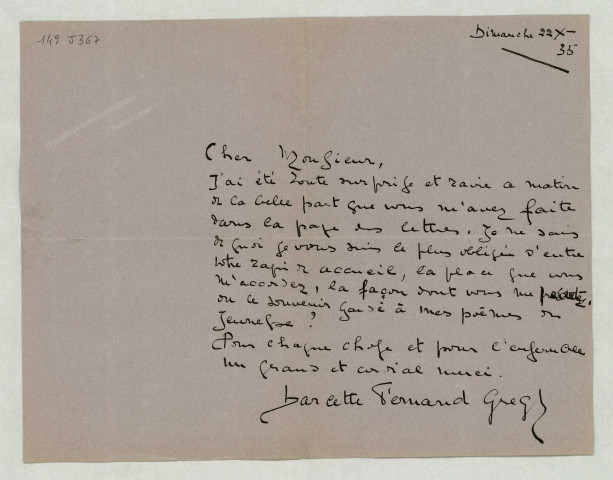 149 J 367
Dimanche 22 X
35
Cher Monsieur,
J'ai été toute surprise et ravie ce matin
de la belle part que vous m'avez faite
dans la page des lettres. Je ne sais
de quoi je vous suis le plus obligée d'entre
votre rapide accueil, la place que vous
m'accordez, la façon dont vous me
ou le souvenir gardé à mes poèmes de
jeunesse ?
Pour chaque chose et pour l'ensemble
un grand et cordial merci.
Harlette Fernand Gregh